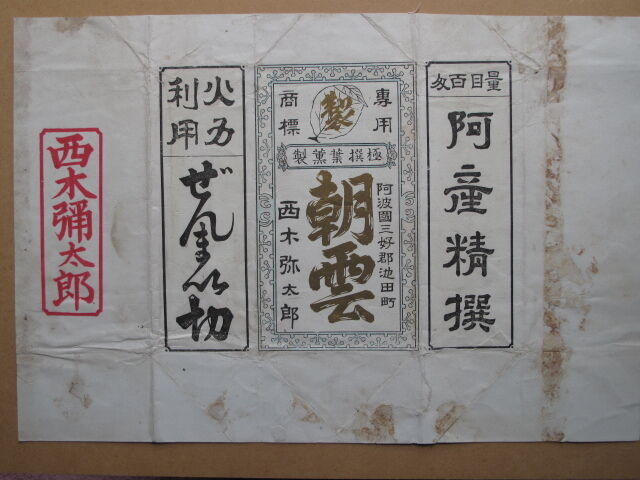 量目百匁
阿産精撰
專用
商標
製
極撰葉薫製
阿波國三好郡池田町
朝雲
西木弥太郎
火力
利用
ぜんまい切
西木彌太郎